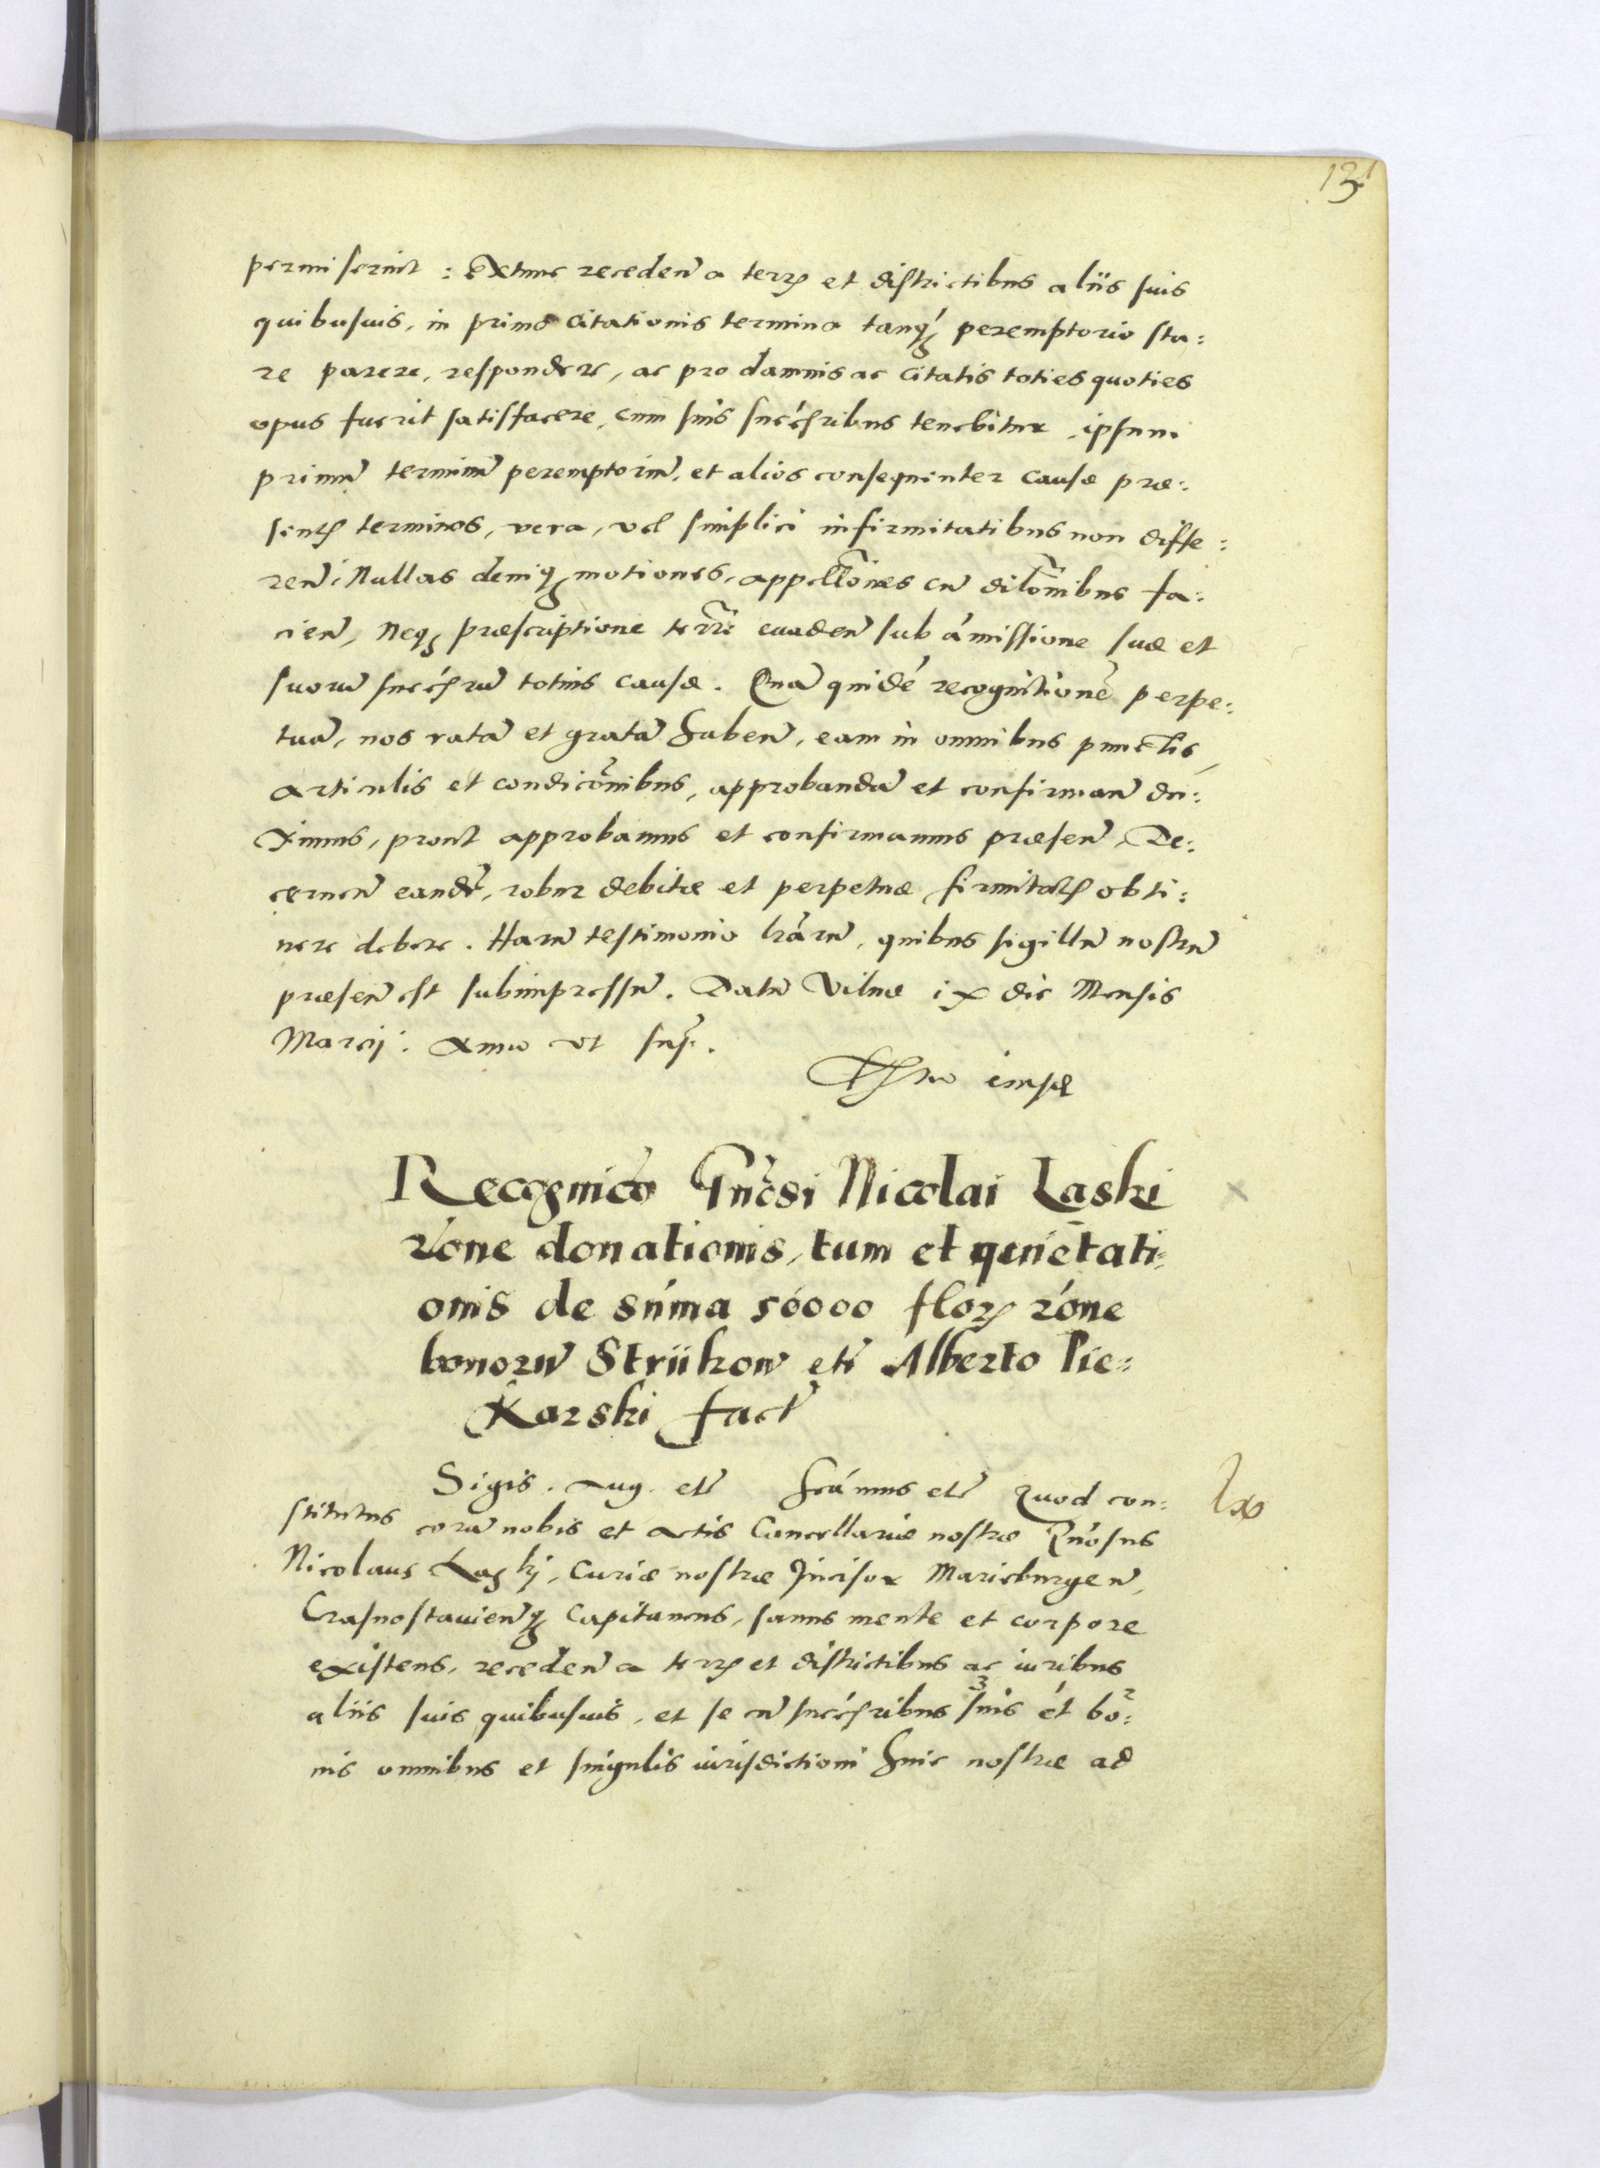 131
permiserint: Extunc receden a terrꝭ et districtibus aliis suis
quibusuis, in primo citationis termino tanqꝫ peremptorio sta:
re parere, respondere, ac pro damnis ac citatis toties quoties
opus fuerit satisfacere, cum suis succꝭribus tenebitur, ipsum
primū terminū peremptoriū, et alios consequenter causæ præ:
sentꝭ terminos, vera, vel simplici infirmitatibus non diffe:
ren̄, Nullas deniqꝫ motiones, appellōnes cū dilōnibus fa:
cien̄, Neqꝫ præscriptione terrae euaden̄ sub amissione suæ et
suorū succꝭrū totius causæ. Quā quidē recognitionē perpe:
tuā, nos ratā et gratā haben̄, eam in omnibus punctis,
articulis et condicōnibus, approbandā et confirman̄ du:
ximus, prout approbamus et confirmamus præsen̄. De:
cernen̄ eandē, robur debitæ et perpetuæ firmitatꝭ obti:
nere debere. Harū testimonio lrārū, quibus sigillū nostrū
præsen̄ est subimpressū. Datū Vilnæ ix die Mensis
Marcij. Anno vt supꝭ.
Recognicō Gn̄osi Nicolai Laski
rōne donationis, tum et quietati:
onis de sūma 50000 florꝭ rōne
bonorū Striikow etc̄ Alberto Pie:
karski fact̄
Sigis. Aug. etc̄ scīmus etc̄ Quod con:
stitutus corā nobis et Actis Cancellariæ nostræ Gn̄osus
Nicolaus Laskj, Curiæ nostræ Incisor Marieburgen̄,
Crasnostauien̄qꝫ Capitaneus, sanus mente et corpore
existens, receden̄ a terrꝭ et districtibus ac iuribus
aliis suis quibusuis, et se cū succꝭribus suis et bo:
nis omnibus et singulis iurisdictioni huic nostræ ad